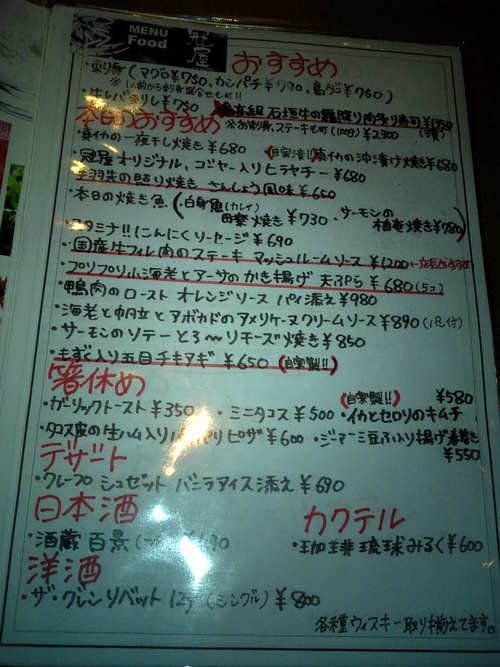 MENU
Food
おすすめ
・刺身(マグロ¥750、カンパチ¥790、島ダコ¥750)
※1人前から刺身盛合せも可!!
・生レバ刺し¥750
最高級石垣牛の霜降り肉炙り寿司¥1950
(3貫)
本日のおすすめ
※お刺身、ステーキも可(100g)¥2,300
・真イカの一夜干し焼き¥680
(自家漬!!)真イカの沖漬け焼き¥680
・冠屋オリジナル、ゴーヤー入りヒラヤチー¥680
・手羽先の照り焼き さんしょう風味¥650
・本日の焼き魚(白身魚(カレイ)
田楽焼き¥730
・サーモンの
柚庵焼き¥780)
スタミナ!!にんにくソーセージ¥690
・国産牛フィレ肉のステーキ マッシュルームソース¥1200
・プリプリ小海老とアーサのかき揚げ 天ぷら¥680(5コ)
・鴨肉のロースト オレンジソース パイ添え¥980
・海老と帆立とアボカドのアメリケーヌクリームソース¥890(パン付)
・サーモンのソテーとろ〜りチーズ焼き¥850
・もずく入り五目チキアギ¥650(自家製!!)
箸休め
・ガーリックトースト¥350
・ミニタコス¥500
(自家製!!)
¥580
・イカとセロリのキムチ
・タコス屋の生ハム入りパリパリピザ¥600
・ジーマーミ豆ふ入り揚げ春巻き
¥550
デザート
・クレープシュゼット バニラアイス添え¥690
日本酒
カクテル
・酒蔵 百景 ¥690
・珈琲琉球みるく¥600
洋酒
・ザ・グレンリベット12y(シングル)¥800
各種ウィスキー取り揃えてます。